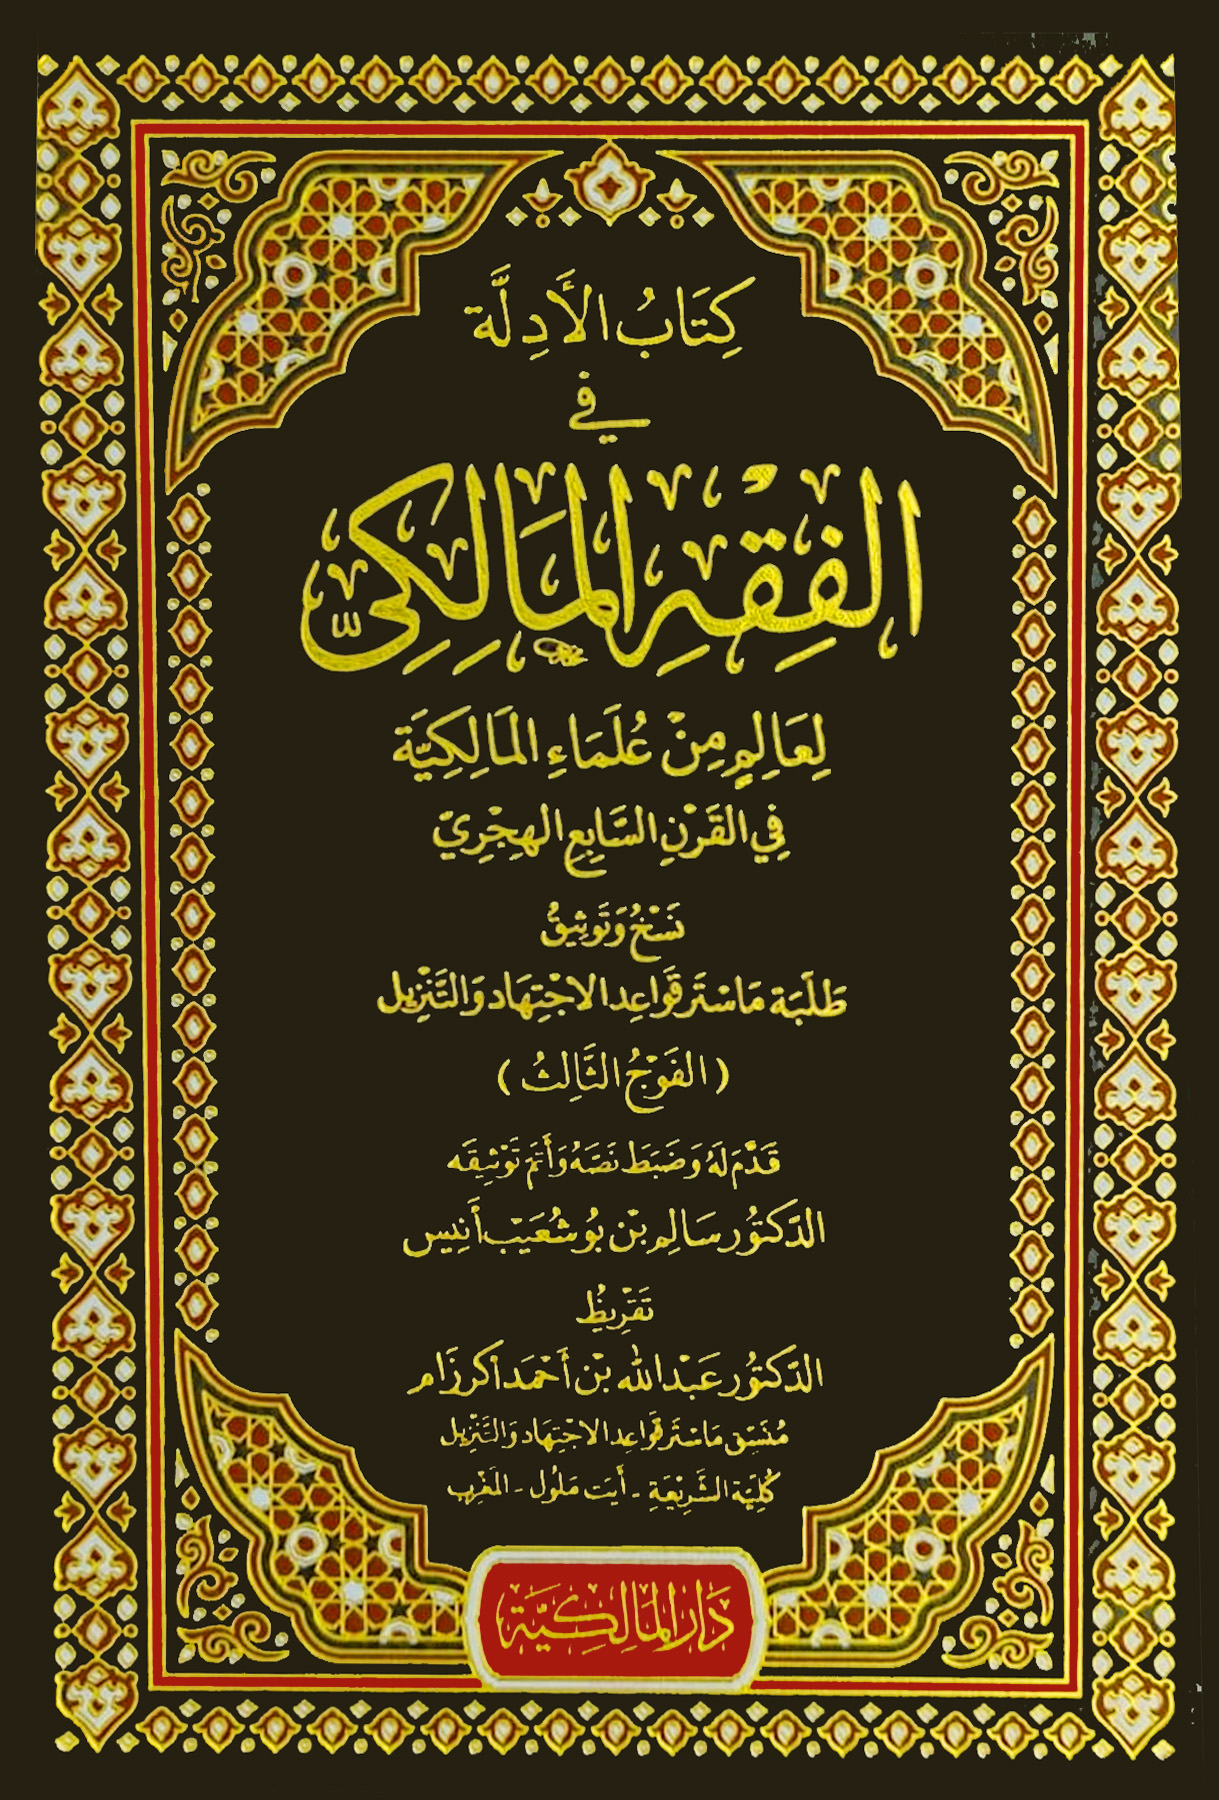 كِتَابُ الأَدِلَّة
في
الفِقْهِ المَالِكِيّ
لِعَالِمٍ مِنْ عُلَمَاءِ المَالِكِيَّة
فِي القَرْنِ السَّابِعِ الهِجْرِيّ
نَسْخُ وَتَوثِيقُ
طَلَبَة مَاسْتَر قَوَاعِد الاجْتِهَاد وَالتَّنْزِيل
(الفَوْجُ الثَّالِثُ)
قَدَّمَ لَهُ وَضَبَطَ نَصَهُ وَأَتَمَ تَوْثِيقَه
الدّكتُور سَالِم بْن بُوشُعَيْب أَنِيس
تَقْرِيظُ
الدّكتُور عَبْد الله بْن أَحْمَد اكرزَام
مُنَسِق مَاسْتَر قَوَاعِد الاجْتِهَاد وَالتَّنْزِيل
كُلِيَّة الشَّرِيْعَةِ - أَيَت مَلُول - المَغْرِب
دَار المَالِكِيَّة